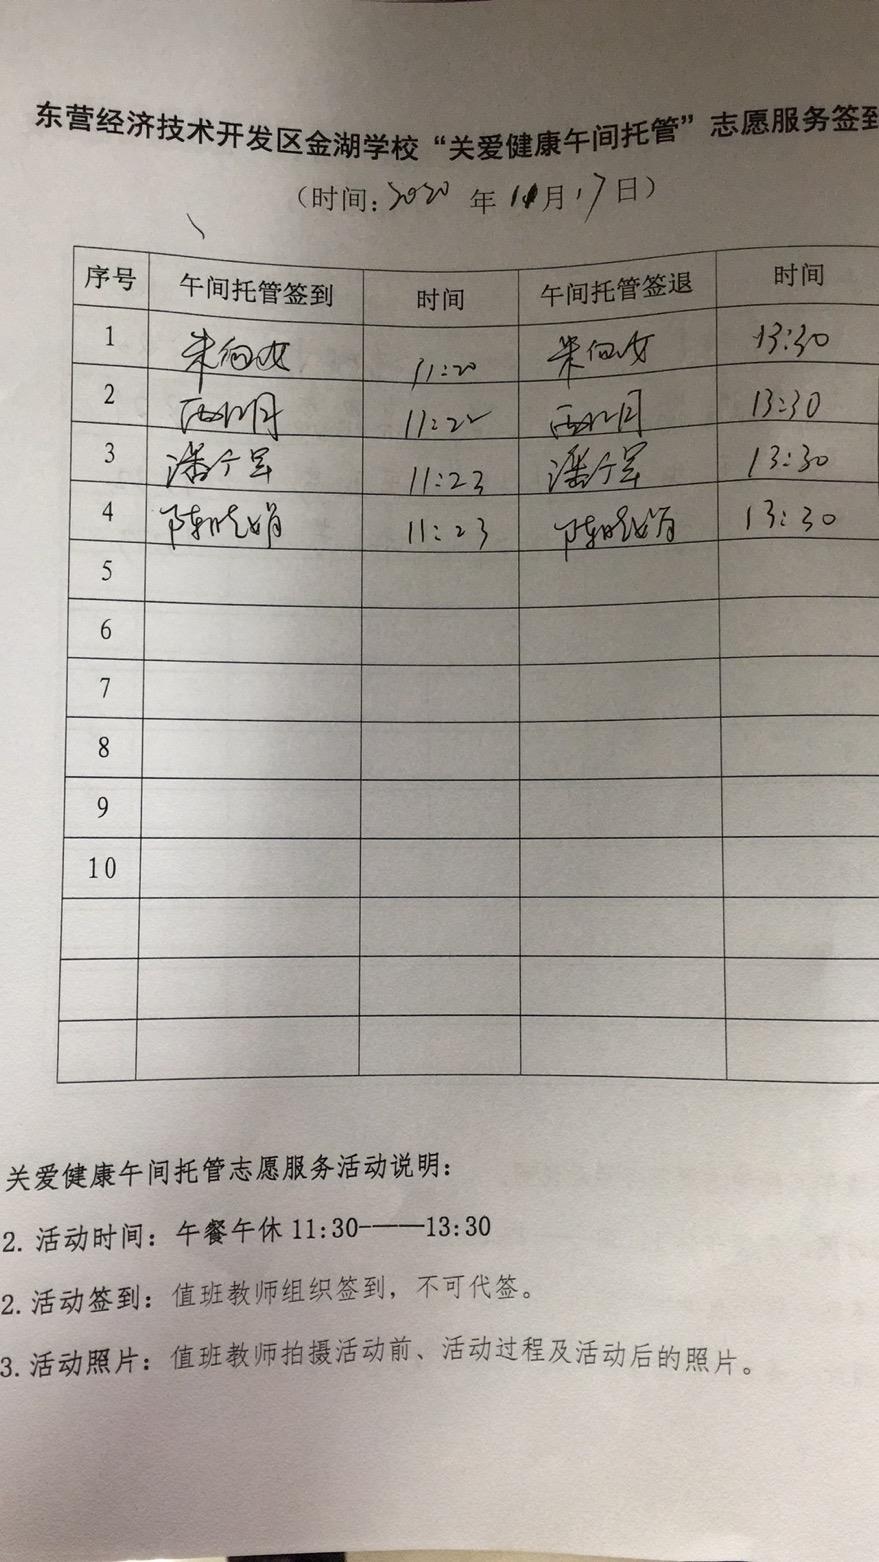 东营经济技术开发区金湖学校“关爱健康午间托管”志愿服务签到
（时间：2020 年 11月17日）
序号 午间托管签到 时间 午间托管签退 时间
1 11:20 13:30
2 11:22 13:30
3 潘 军 11:23 潘 军 13:30
4 陈晓娟 11:23 陈晓娟 13:30
5
6
7
8
9
10
关爱健康午间托管志愿服务活动说明：
2. 活动时间：午餐午休 11:30——13:30
2. 活动签到：值班教师组织签到，不可代签。
3. 活动照片：值班教师拍摄活动前、活动过程及活动后的照片。